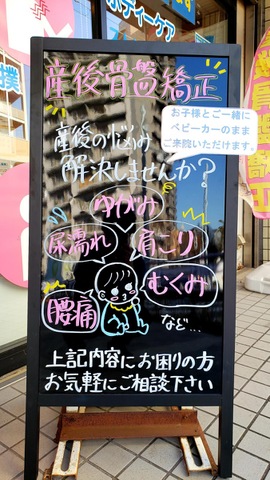 ボディーケア
産後骨盤矯正
お子様とご一緒に
ベビーカーのまま
ご来院いただけます。
産後の悩み
解決しませんか？
ゆがみ
尿漏れ
肩こり
腰痛
むくみ
など...
上記内容にお困りの方
お気軽にご相談下さい